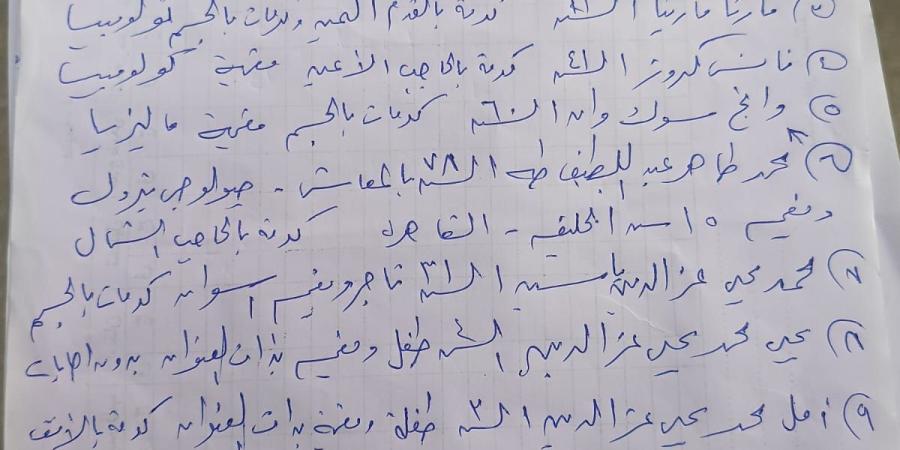 ③ مارتا مارتينا السن كدمة بالقدم اليمين وكدمات بالجسم كولومبيا
④ فانس كروز السن ٤١ كدمة بالحاجب الأعين مقيمة كولومبيا
⑤ وانج سوك وان السن ٦٠ كدمات بالجسم مقيمة ماليزيا
⑥ محمد طاهر عبد اللطيف طه السن ٧٨ بالمعاش - جيولوجى بترول
ومقيم ١٥ سنه الخليفه - القاهره كدمة بالحاجب الشمال
⑦ محمد يحيى عز الدين ياسين السن ٣١ تاجر ومقيم اسوان كدمات بالجسم
⑧ يحيى محمد يحيى عز الدين السن ٤ طفل ومقيم بذات العنوان بدون اصابات
⑨ أمل محمد يحيى عز الدين السن ٣ طفلة ومقيمة بذات العنوان كدمة بالأنف